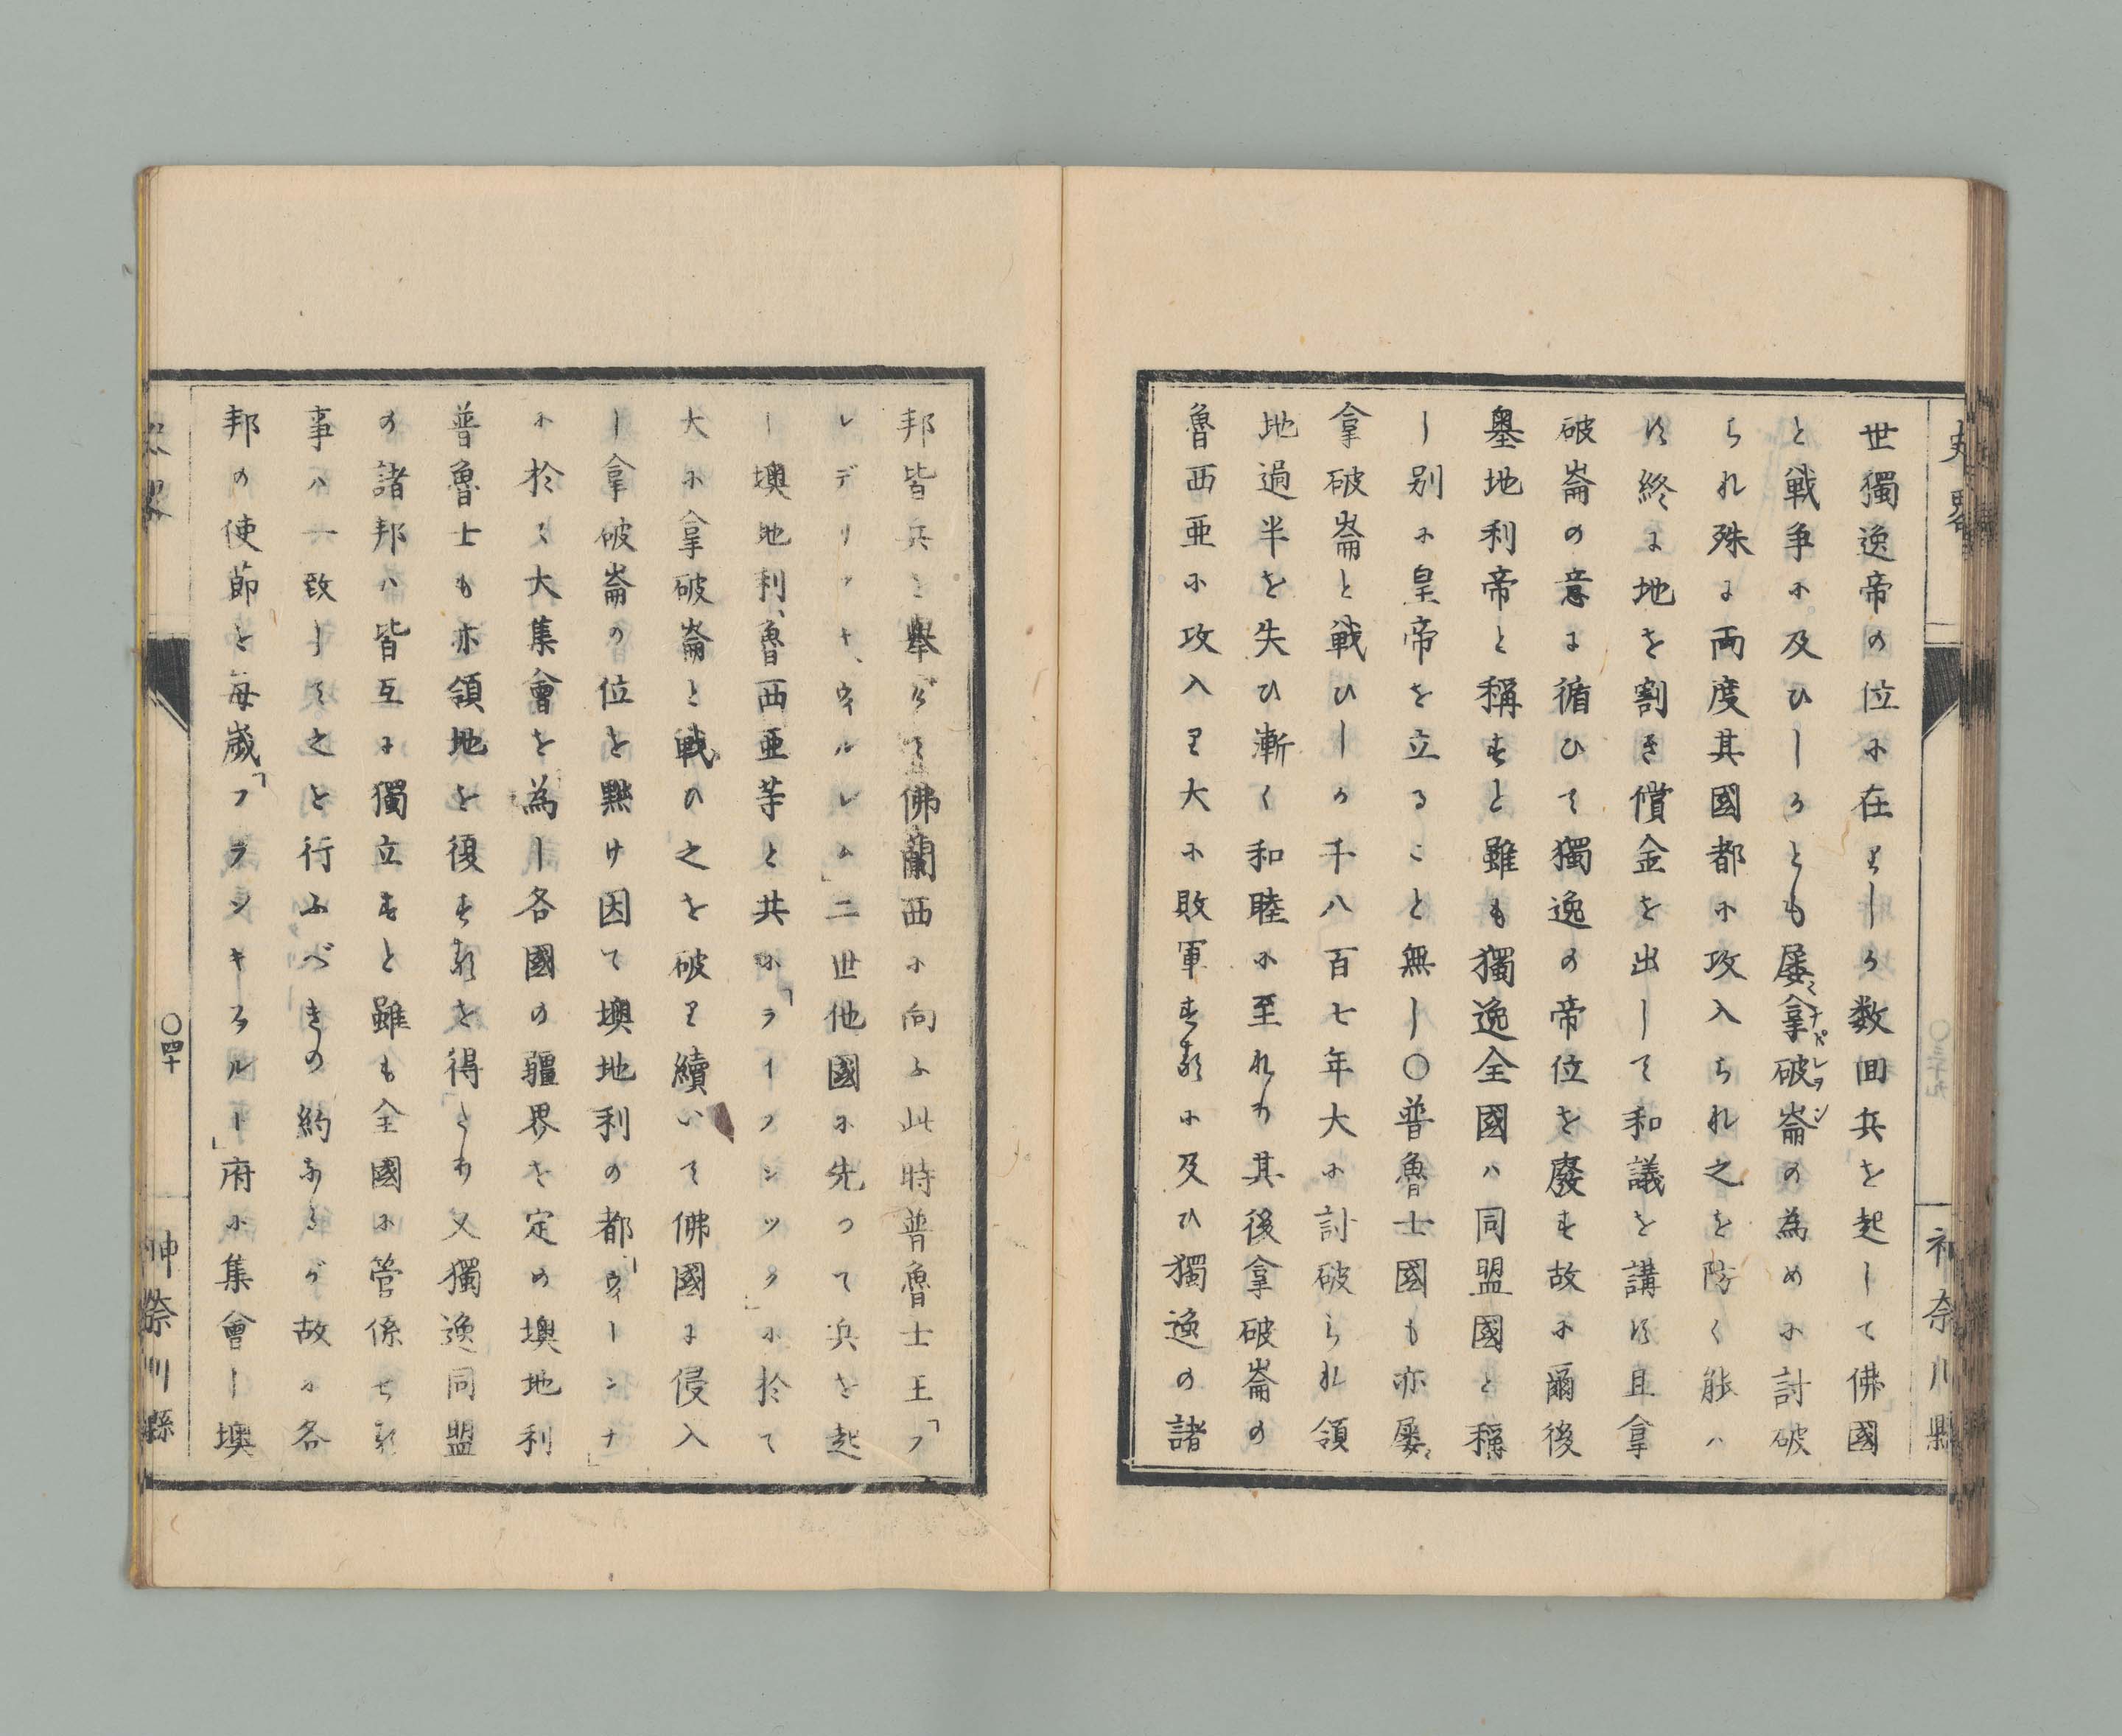 史略
〇三十九
神奈川縣
世獨逸帝の位に在りしが数囬兵を起して佛國
と戦争に及ひしかとも屡〻拿破崙の為めに討破
ナポレヲン
られ殊に両度其國都に攻入られ之を防く能ハ
ず終に地を割き償金を出して和議を講ず且拿
破崙の意に循ひて獨逸の帝位を廢す故に爾後
墺地利帝と稱すと雖も獨逸全國ハ同盟國と稱
し别に皇帝を立ること無し〇普魯士國も亦屡〻
拿破崙と戦ひしが千八百七年大に討破られ領
地過半を失ひ漸く和睦に至れり其後拿破崙の
魯西亜に攻入り大に敗軍する に及ひ獨逸の諸
邦皆兵を舉げて佛蘭西に向ふ此時普魯士王「フ
レデリッキ、ウィルレム」二世他國に先つて兵を起
し墺地利、魯西亜等と共に「ライフシツク」に於て
大に拿破崙と戦ひ之を破り續いて佛國に侵入
し拿破崙の位を黜け因て墺地利の都「ウィーンナ」
に於て大集會を為し各國の疆界を定め墺地利
普魯士も亦領地を復するを得たり又獨逸同盟
の諸邦ハ皆互に獨立すと雖も全國に管係せる
事ハ一致して之を行ふべきの約なるが故に各
邦の使節を毎歳「フランキホルト」府に集會し墺
史畧
〇四十
神奈川縣